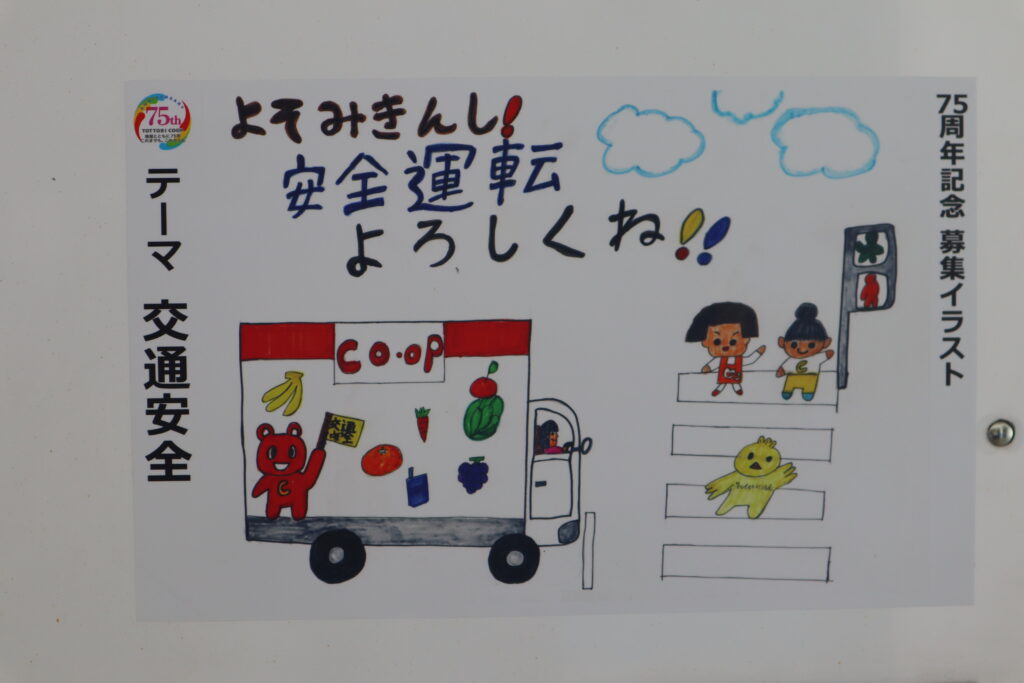 75周年記念 募集イラスト
75th
TOTTORI CO-OP
テーマ 交通安全
よそみきんし!
安全運転
よろしくね!!
CO·OP
C
C